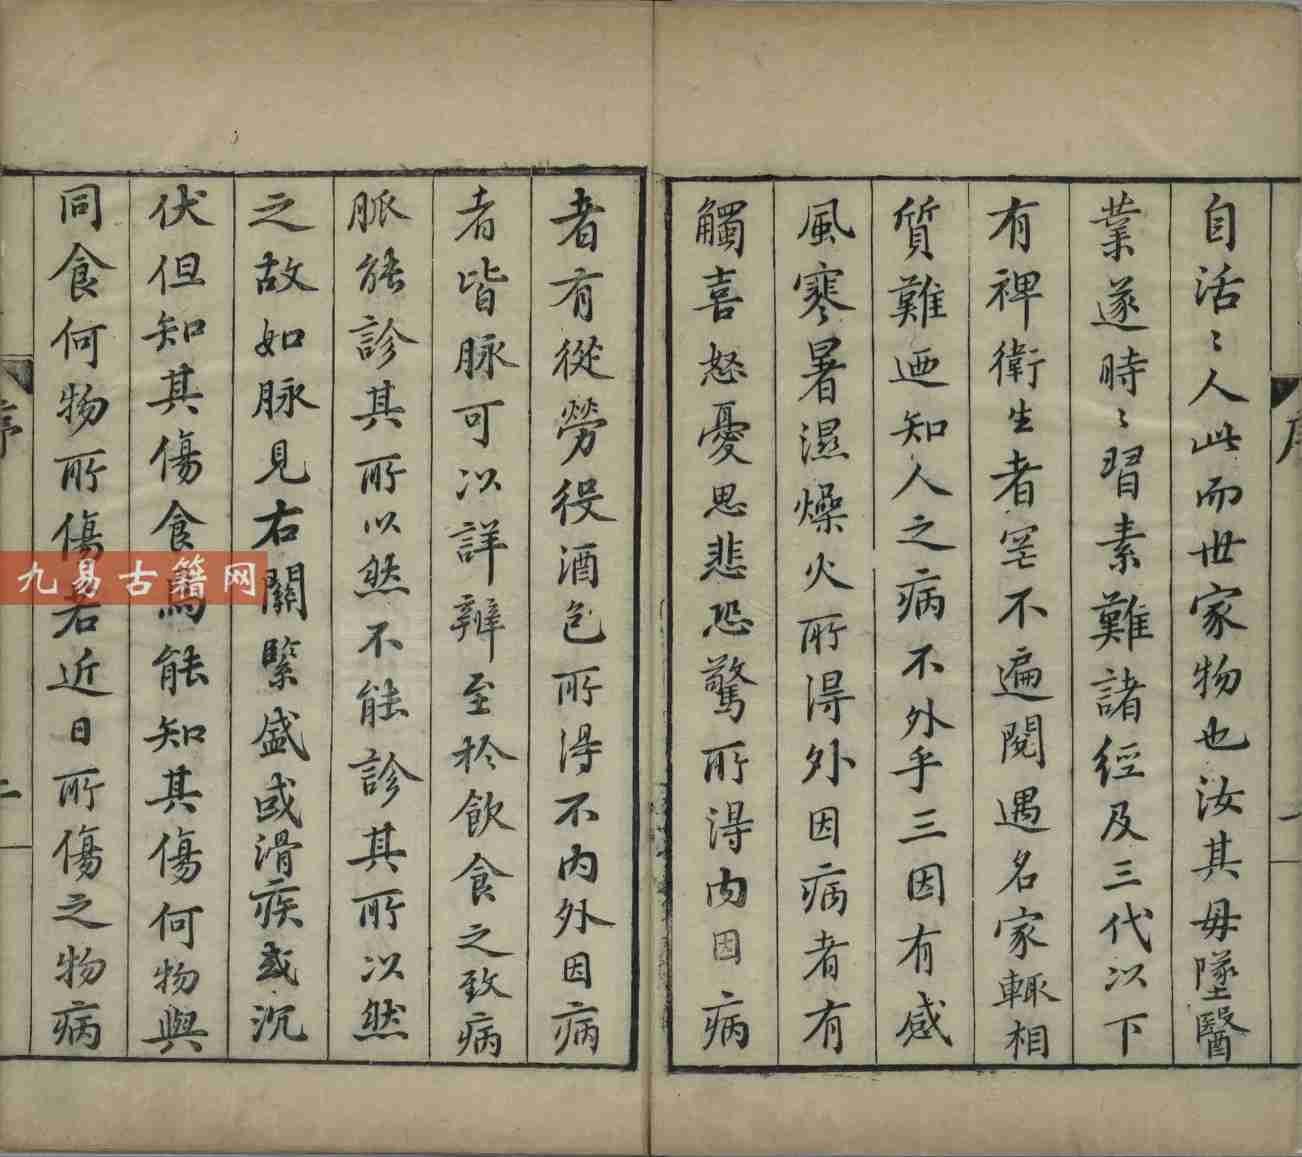 自活〻人此而世家物也汝其毋墜醫
業遂時〻習素難諸經及三代以下
有裨衛生者罔不遍閱遇名家輒相
質難迺知人之病不外乎三因有感
風寒暑濕燥火所得外因病者有
觸喜怒憂思悲恐驚所得內因病
者有從勞役酒色所得不內外因病
者皆脉可以詳辨至於飲食之致病
脈能診其所以然不能診其所以然
之故如脉見右關緊盛或滑疾或沉
伏但知其傷食焉能知其傷何物與
同食何物所傷若近日所傷之物病
序
二
九易古籍网